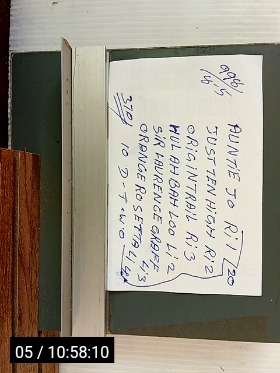 AUNTIE JO Ri 1/20
JUST TEN HIGH Ri 2
ORIGINTRAIL Ri 3
HULAH BAH LOO Li 2
SIR LAURENCE GRAFF
ORANGE ROSETTA Li 3
10 D-TWO Li 4
370/
05 / 10:58:10